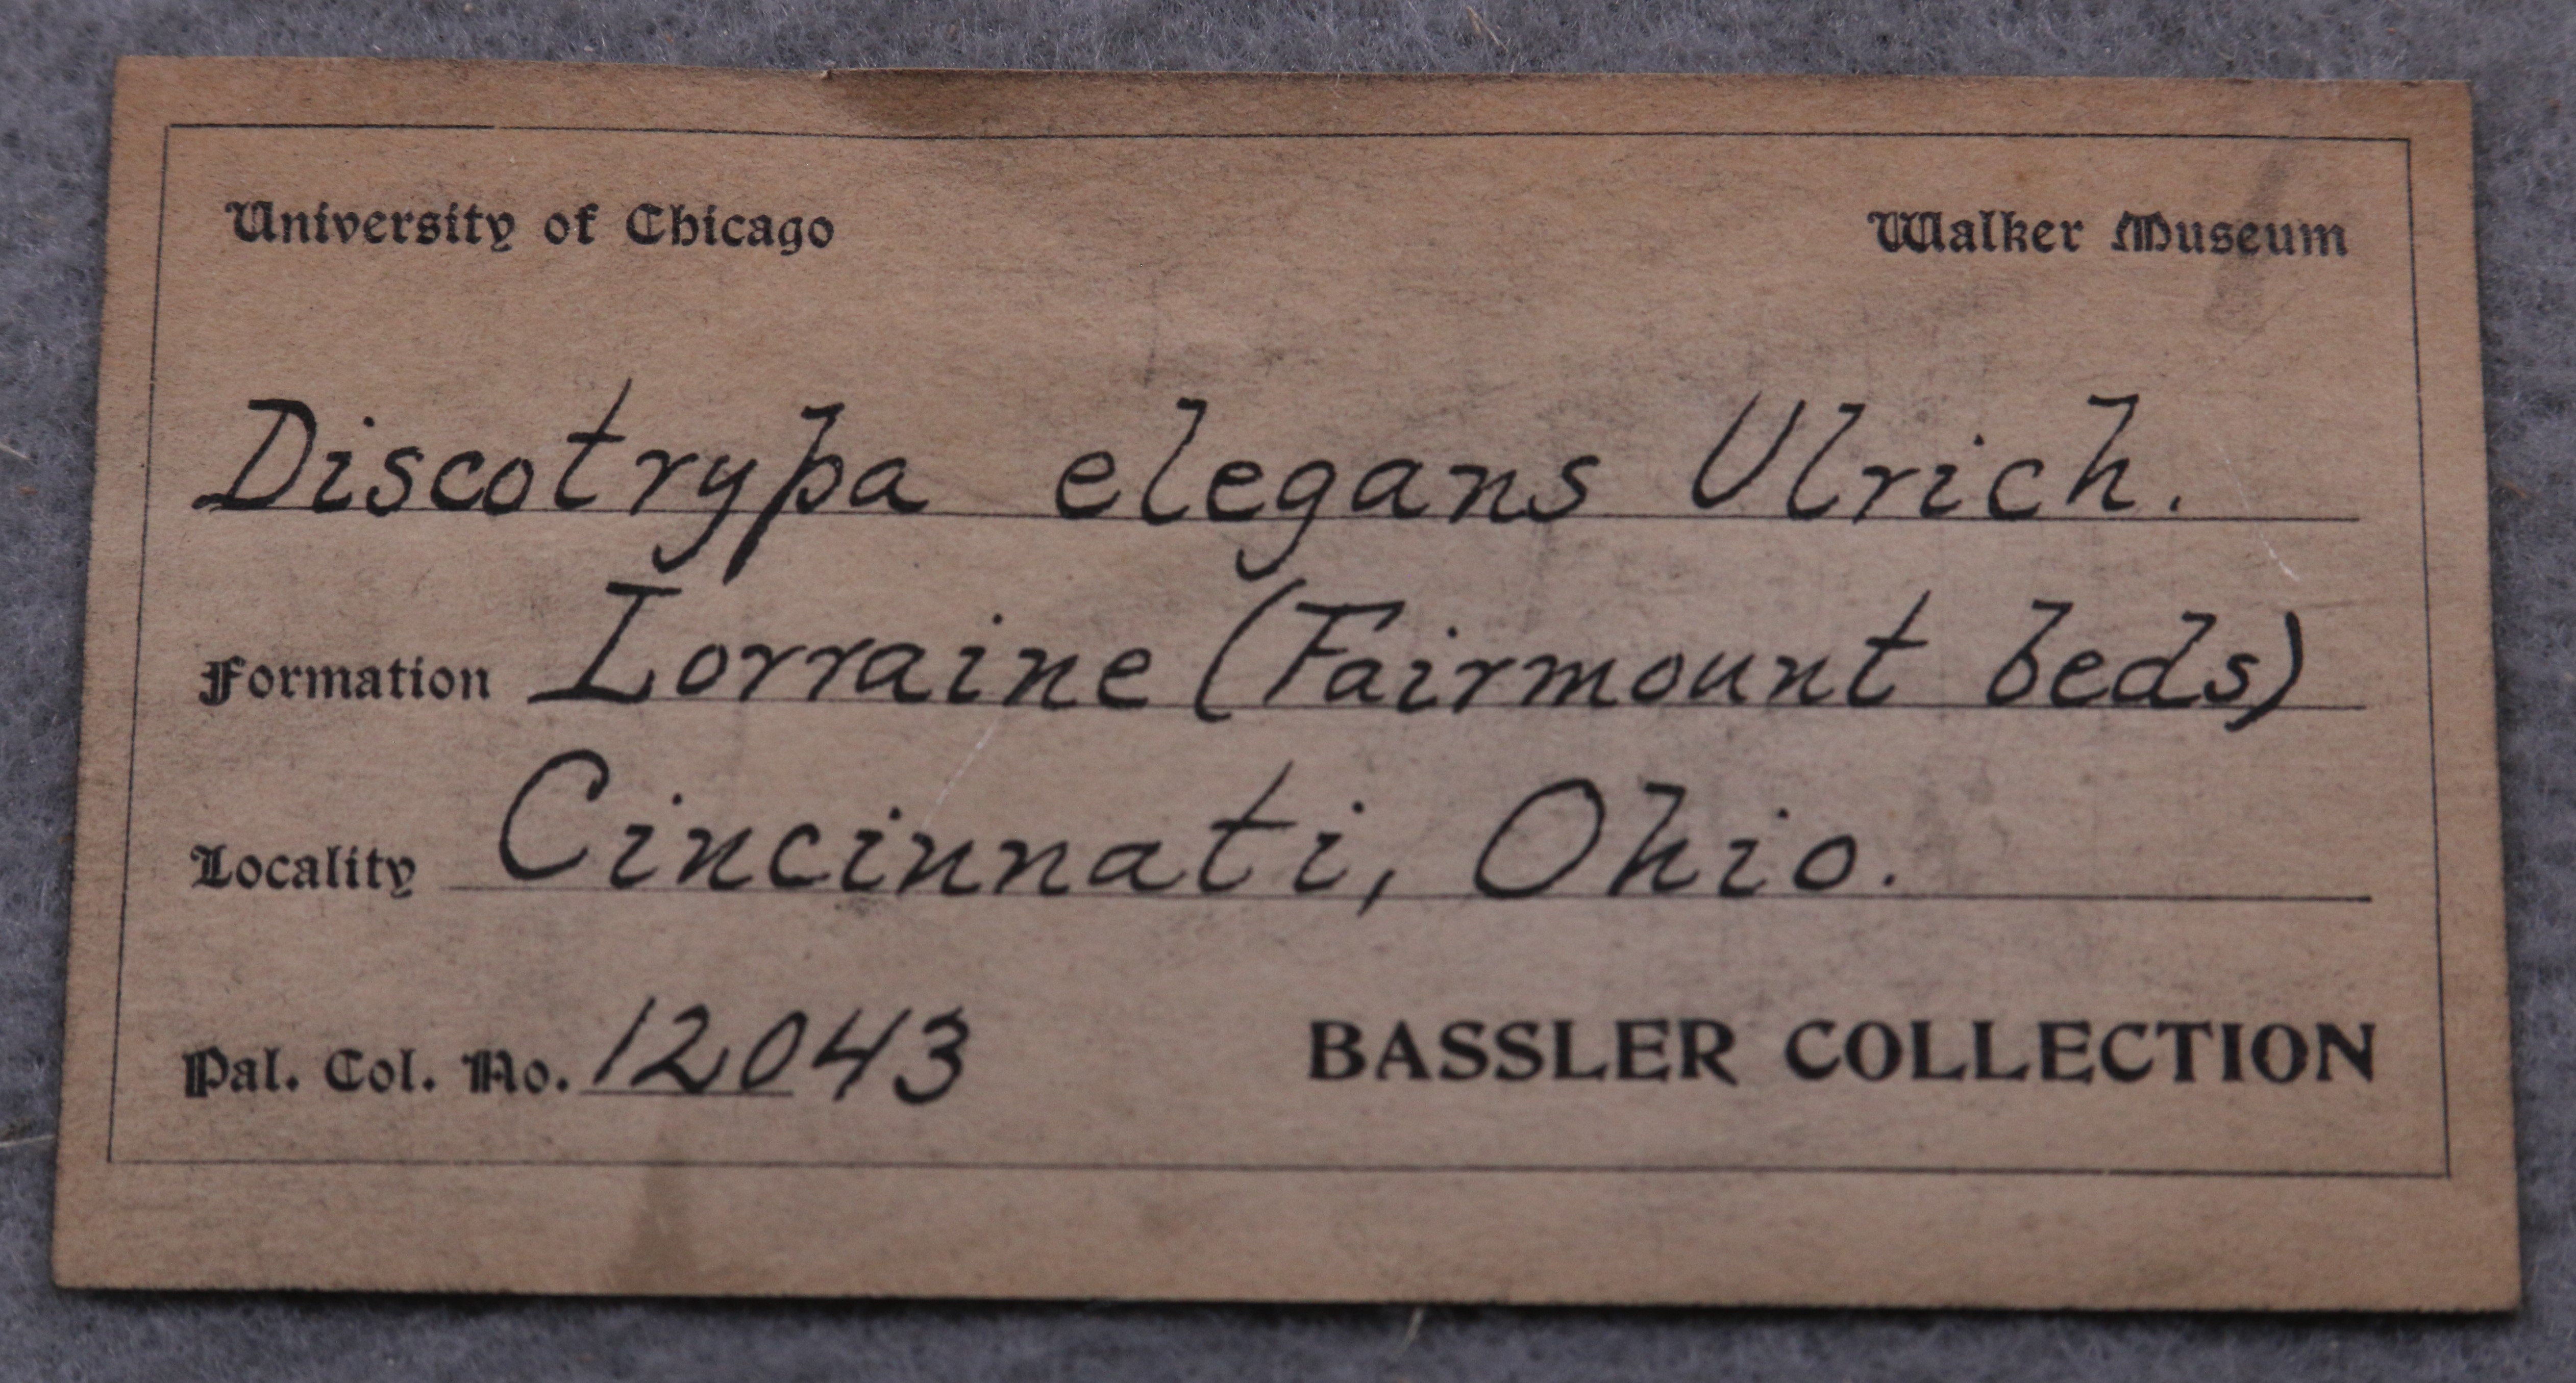 University of Chicago Walker Museum
Discotrypa elegans Ulrich.
Formation Lorraine (Fairmount beds)
Locality Cincinnati, Ohio.
Pal. Col. No. 12043 BASSLER COLLECTION